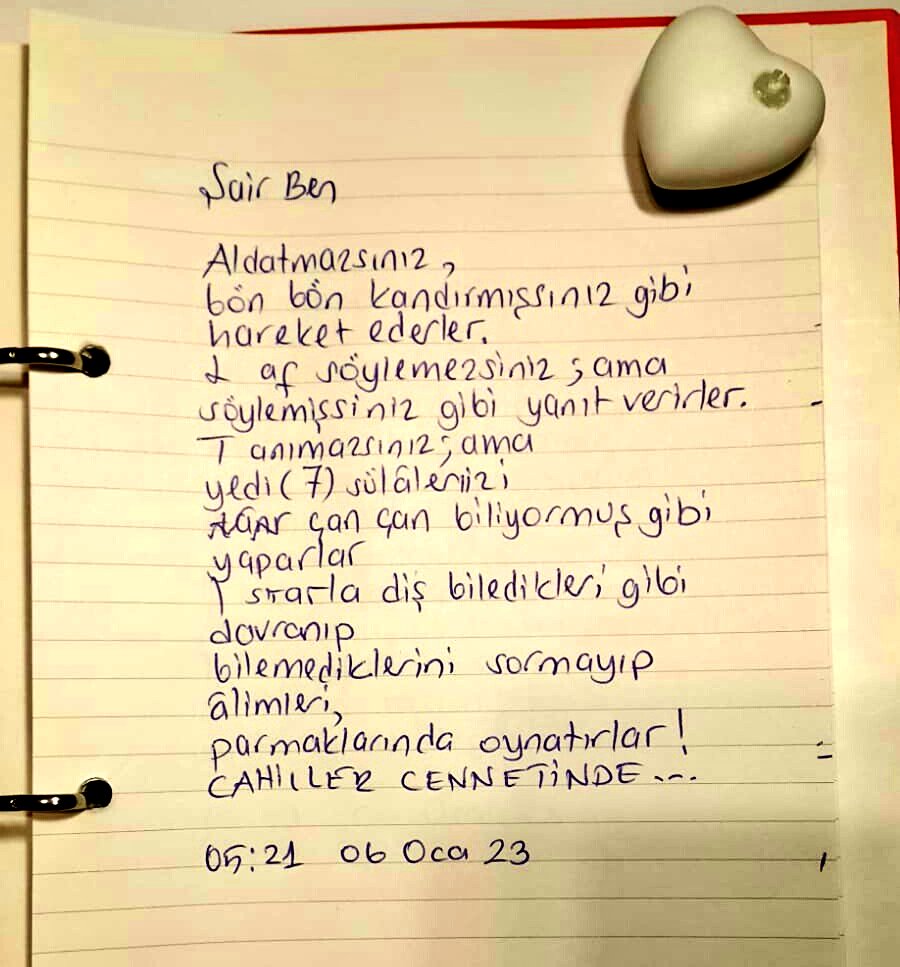 Şair Ben
Aldatmazsınız,
bön bön kandırmışsınız gibi
hareket ederler.
L af söylemezsiniz ; ama
söylemişsiniz gibi yanıt verirler.
T anımazsınız ; ama
yedi (7) sülâlenizi
AĞAr çan çan biliyormuş gibi
yaparlar
I srarla diş biledikleri gibi
davranıp
bilemediklerini sormayıp
âlimleri,
parmaklarında oynatırlar!
CAHİLLER CENNETİNDE ....
05:21 06 Oca 23